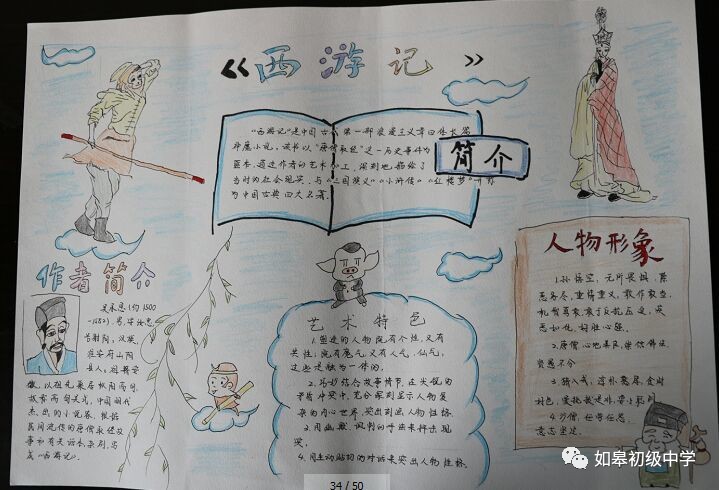 《西游记》
简介
"西游记"是中国古
第一部浪漫主义章回体长篇
神魔小说，该书以"唐僧取经"这一历史事件为
蓝本，通过作者的艺术加工，深刻地描绘了
当时的社会现实，与"三国演义""水浒传""红楼梦"并称
为中国古典四大名著。
作者简介
吴承恩（约1500
-1582），男，字汝忠，
号射阳，汉族，
淮安府山阳
县人，祖籍安
徽，以祖先聚居枞阳高甸，
故称高甸吴氏，中国明代
杰出的小说家，根据
民间流传的唐僧取经故
事和有关话本杂剧，写
成《西游记》。
艺术特色
1.塑造的人物既有个性，又有
共性；既有魔气，又有人气、仙气，
这些是融为一体的。
2.巧妙结合故事情节，在尖锐的
矛盾冲突中，充分深刻显示人物复
杂的内心世界，突出刻画人物性格。
3.用幽默、讽刺的呼法来抨击现
实。
4.用生动贴切的对话来突出人物性格。
人物形象
1.孙悟空，无所畏惧，
恶务尽，重情重义，敢作敢当，
机智勇敢
2.唐僧心地善良，崇信佛法，
贤愚不分
3.猪八戒，憨朴憨厚，贪财
好色，
4.沙僧，任劳任怨，
意志坚定。
如皋初级中学
34 / 50